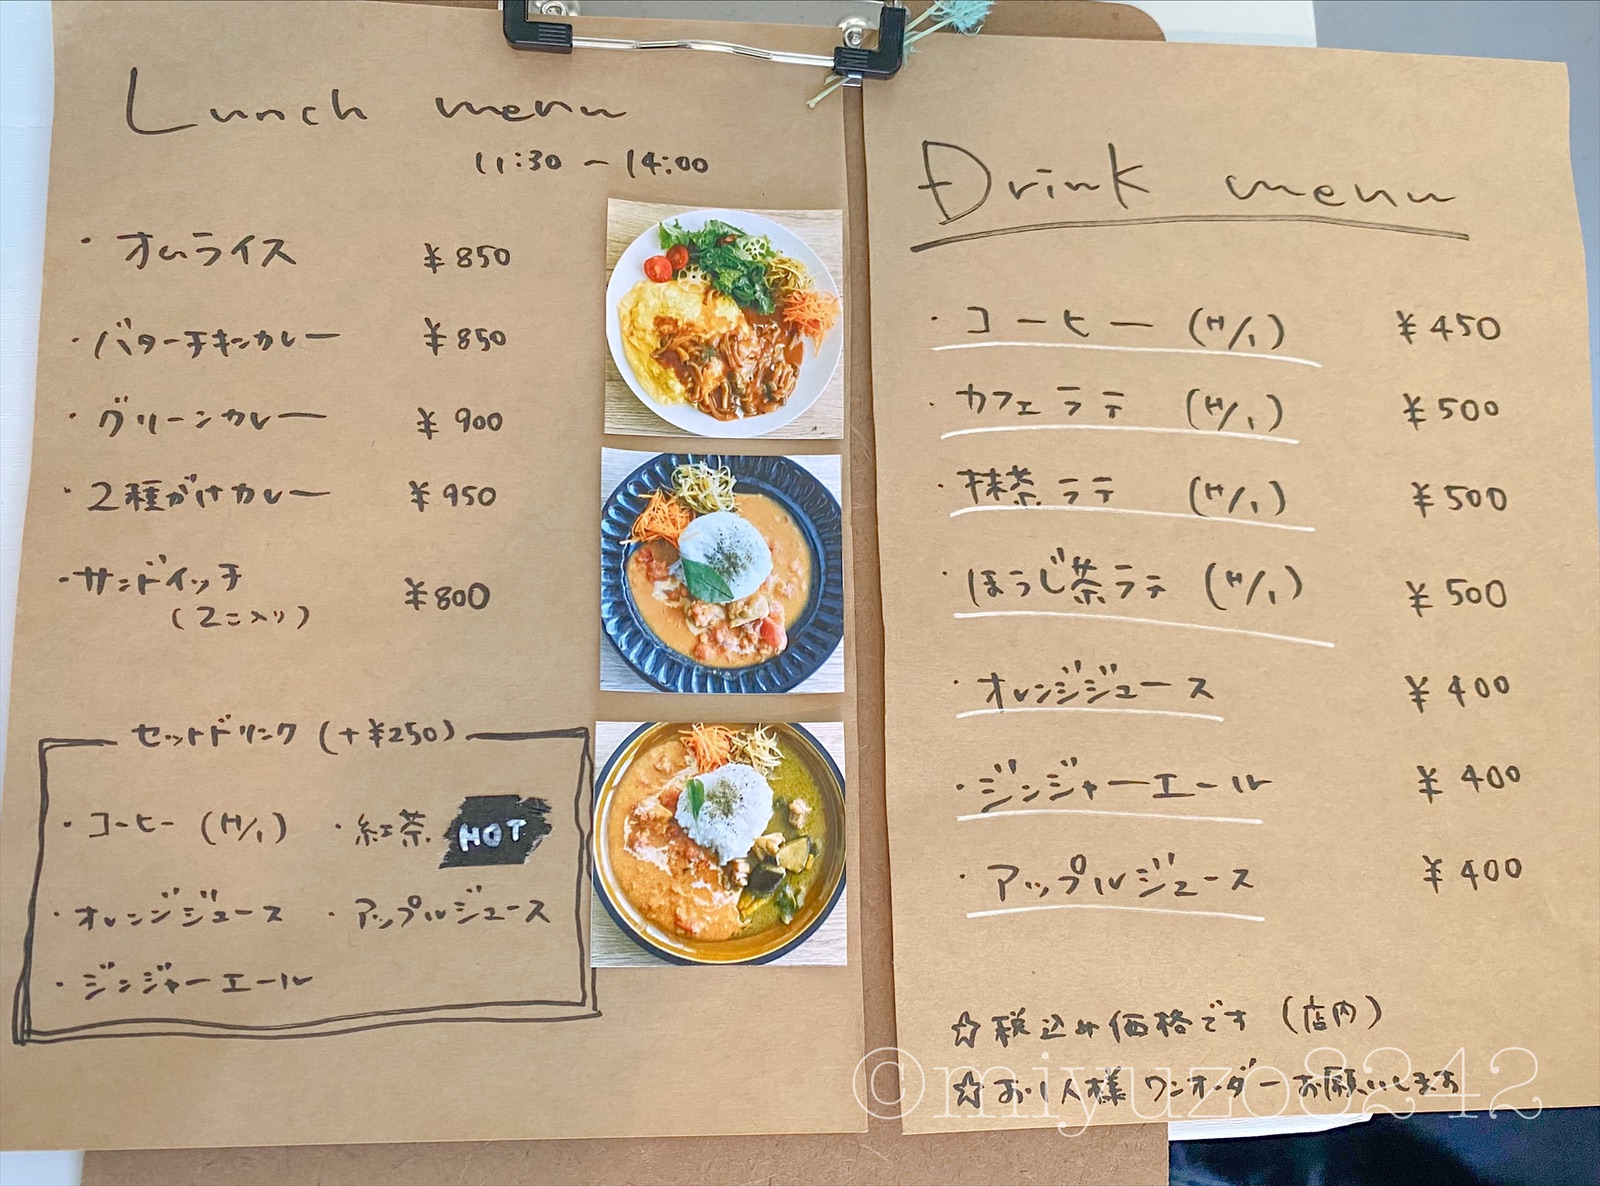 Lunch menu
11:30 ~ 14:00
・オムライス ¥850
・バターチキンカレー ¥850
・グリーンカレー ¥900
・2種がけカレー ¥950
・サンドイッチ ¥800
(2コ入り)
セットドリンク (+¥250)
・コーヒー (H/I) ・紅茶 HOT
・オレンジジュース ・アップルジュース
・ジンジャーエール
Drink menu
・コーヒー (H/I) ¥450
・カフェラテ (H/I) ¥500
・抹茶ラテ (H/I) ¥500
・ほうじ茶ラテ (H/I) ¥500
・オレンジジュース ¥400
・ジンジャーエール ¥400
・アップルジュース ¥400
☆税込み価格です (店内)
☆お1人様 ワンオーダーお願いします
©miyuzo8242